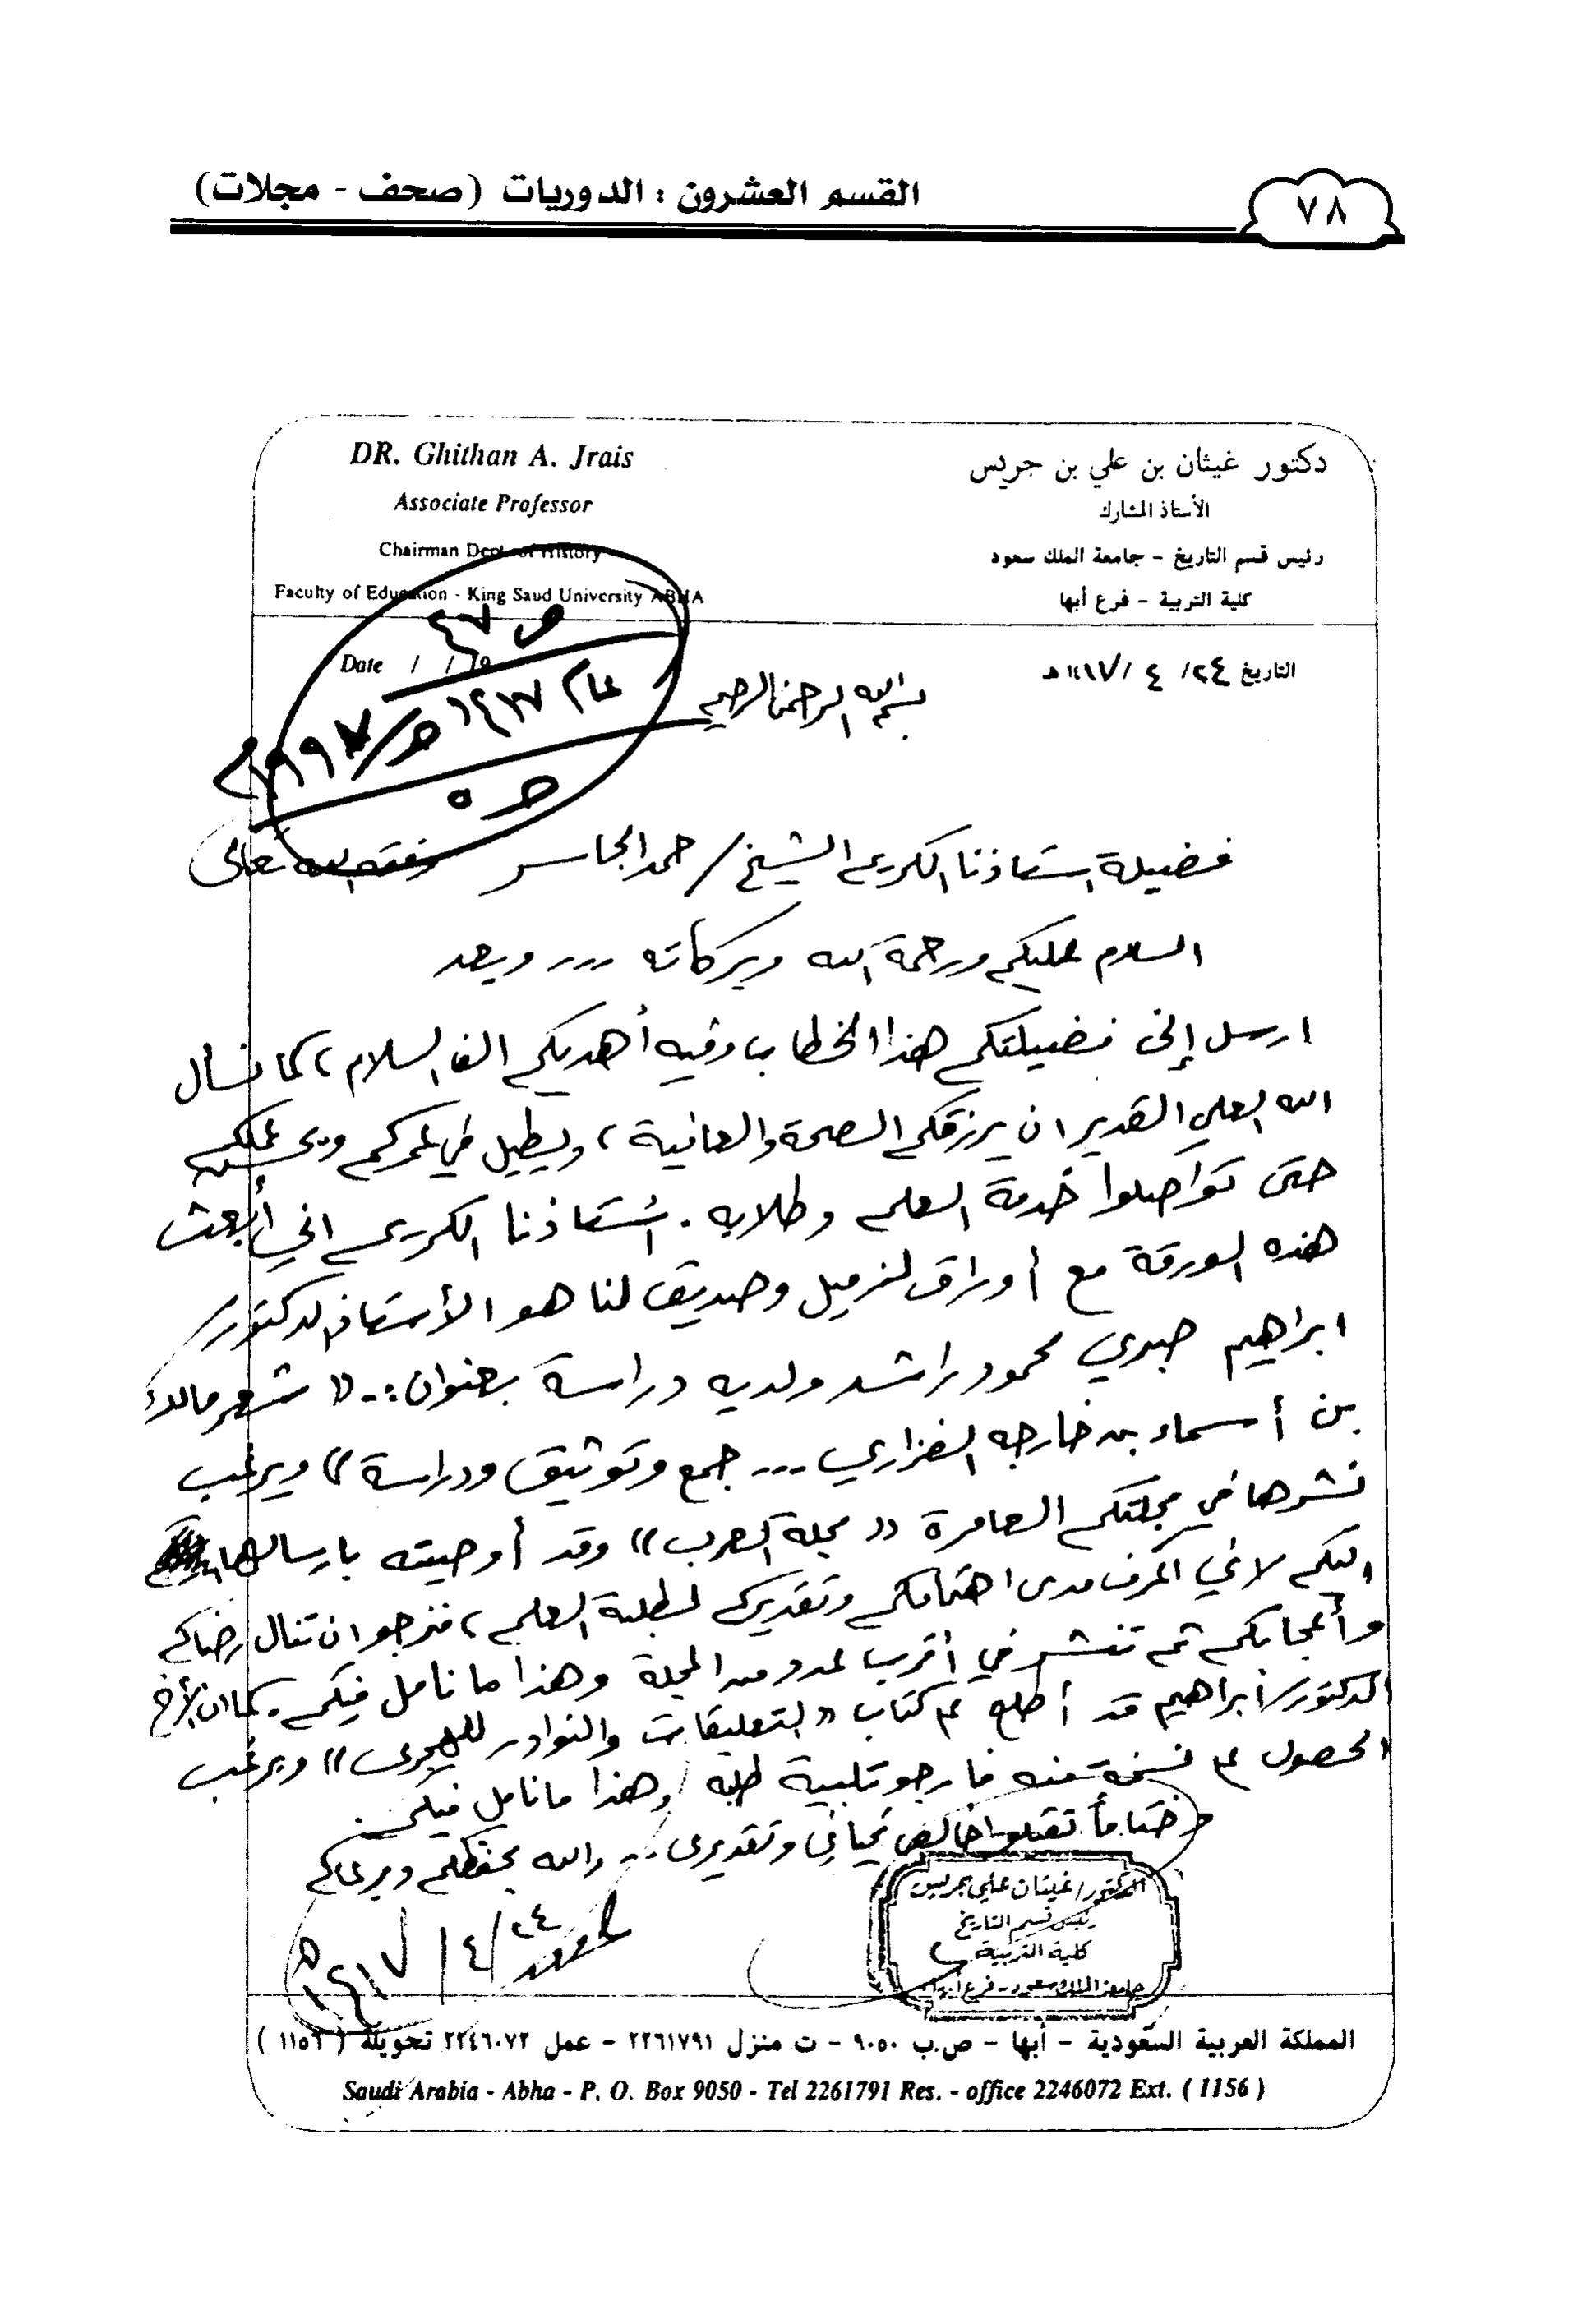 القسم العشرون : الدوريات (صحف - مجلات)
٧٨
DR. Ghithan A. Jrais
Associate Professor
Chairman Dept. of History
Faculty of Education - King Saud University ABHA
دكتور غيثان بن علي بن جريس
الأستاذ المشارك
رئيس قسم التاريخ - جامعة الملك سعود
كلية التربية - فرع أبها
Date / / 19
التاريخ ٢٤/ ٤ /١٤١٧ هـ
ص ٤٧
عام ١٤١٧هـ/١٩٩٧م
بسم الله الرحمن الرحيم
فضيلة استاذنا الكريم الشيخ/ حمد الجاسر وفقه الله تعالى
السلام عليكم ورحمة الله وبركاته ... وبعد
ارسل إلى فضيلتكم هذا الخطاب وفيه أهديكم الف السلام، كما نسأل
الله العلي القدير ان يرزقكم الصحة والعافية، ويطيل في عمركم ويحسن عملكم
حتى تواصلوا خدمة العلم وطلابه. أستاذنا الكريم اني أبعث
هذه الورقة مع أوراق لزميل وصديق لنا هو الأستاذ الدكتور/
ابراهيم صبري محمود راشد ولديه دراسة بعنوان:- «شعر مالك
بن أسماء بن خارجه الفزاري ... جمع وتوثيق ودراسة» ويرغب
نشرها في مجلتكم العامرة «مجلة العرب» وقد أوصيته بارسالها
اليكم لاني اعرف مدى اهتمامكم وتقديركم لطلبة العلم، فنرجو ان تنال رضاكم
وأعجابكم ثم تنشر في اقرب عدد من المجلة وهذا ما نامل فيكم. كما ان الأخ
الدكتور/ ابراهيم قد أطلع على كتاب «التعليقات والنوادر للهجري» ويرغب
الحصول على نسخة منه فارجو تلبية طلبه وهذا ما نامل فيكم.
وختاماً تقبلوا خالص تحياتي وتقديري .. والله يحفظكم ويرعاكم
٢٤/٤/١٤١٧هـ
الدكتور/ غيثان علي جريس
رئيس قسم التاريخ
كلية التربية
جامعة الملك سعود - فرع أبها
المملكة العربية السعودية - أبها - ص.ب ٩٠٥٠ - ت منزل ٢٢٦١٧٩١ - عمل ٢٢٤٦٠٧٢ تحويلة ( ١١٥٦ )
Saudi Arabia - Abha - P. O. Box 9050 - Tel 2261791 Res. - office 2246072 Ext. ( 1156 )